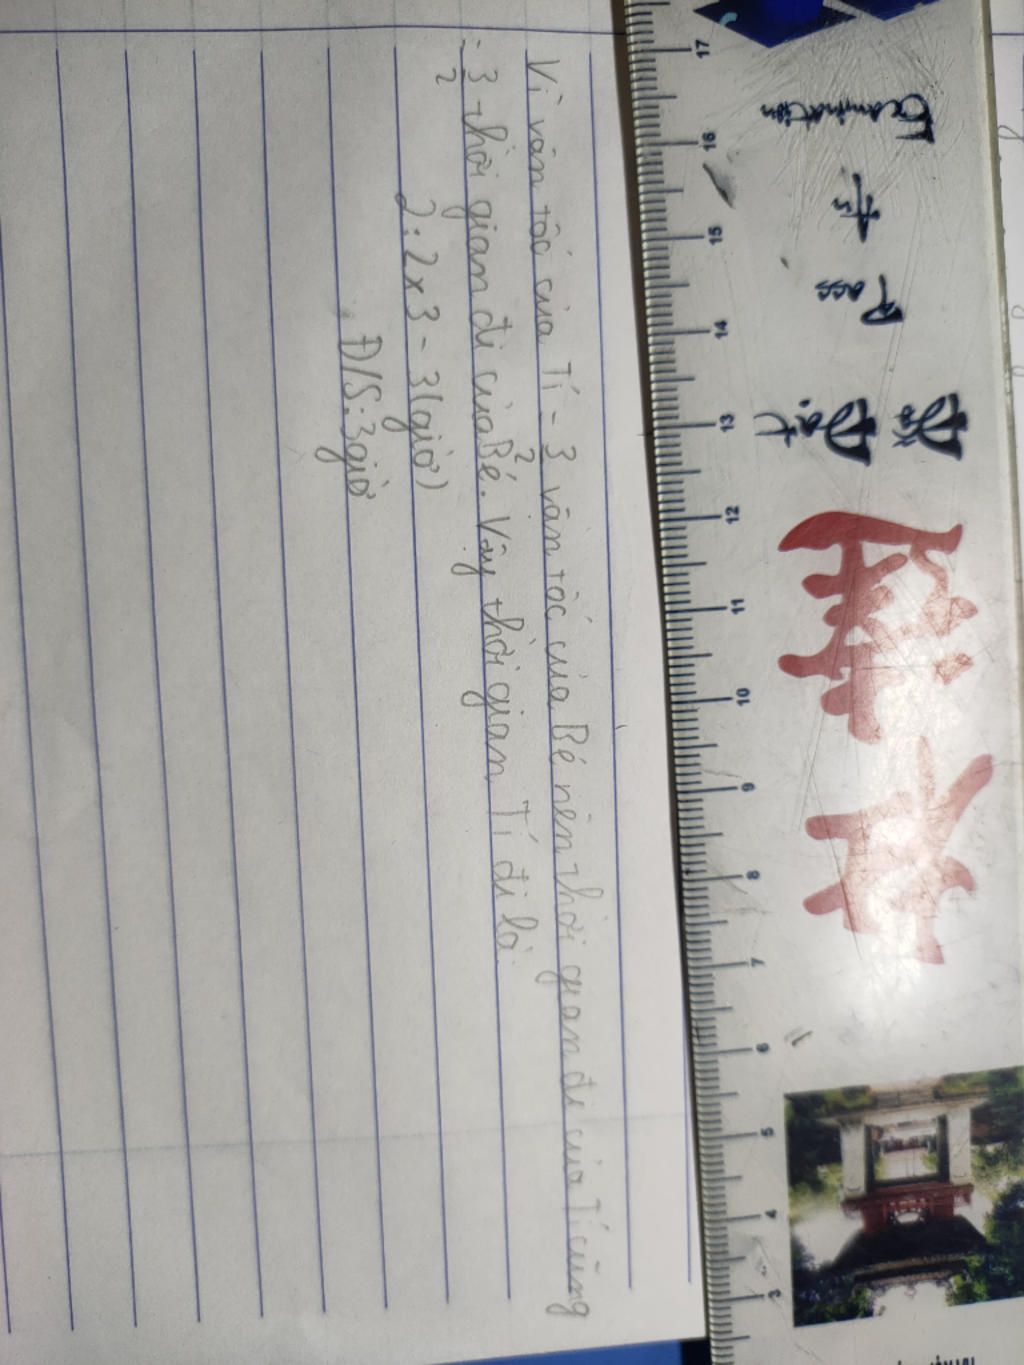 Vì vận tốc của Tí = 3/2 vận tốc của Bé nên thời gian đi của Tí cũng
= 3/2 thời gian đi của Bé. Vậy thời gian Tí đi là:
2:2x3=3(giờ)
Đ/S:3giờ
Examination
to
Pass
Đỗ
Đạt
17 16 15 14 13 12 11 10 9 8 7 6 5 4 3